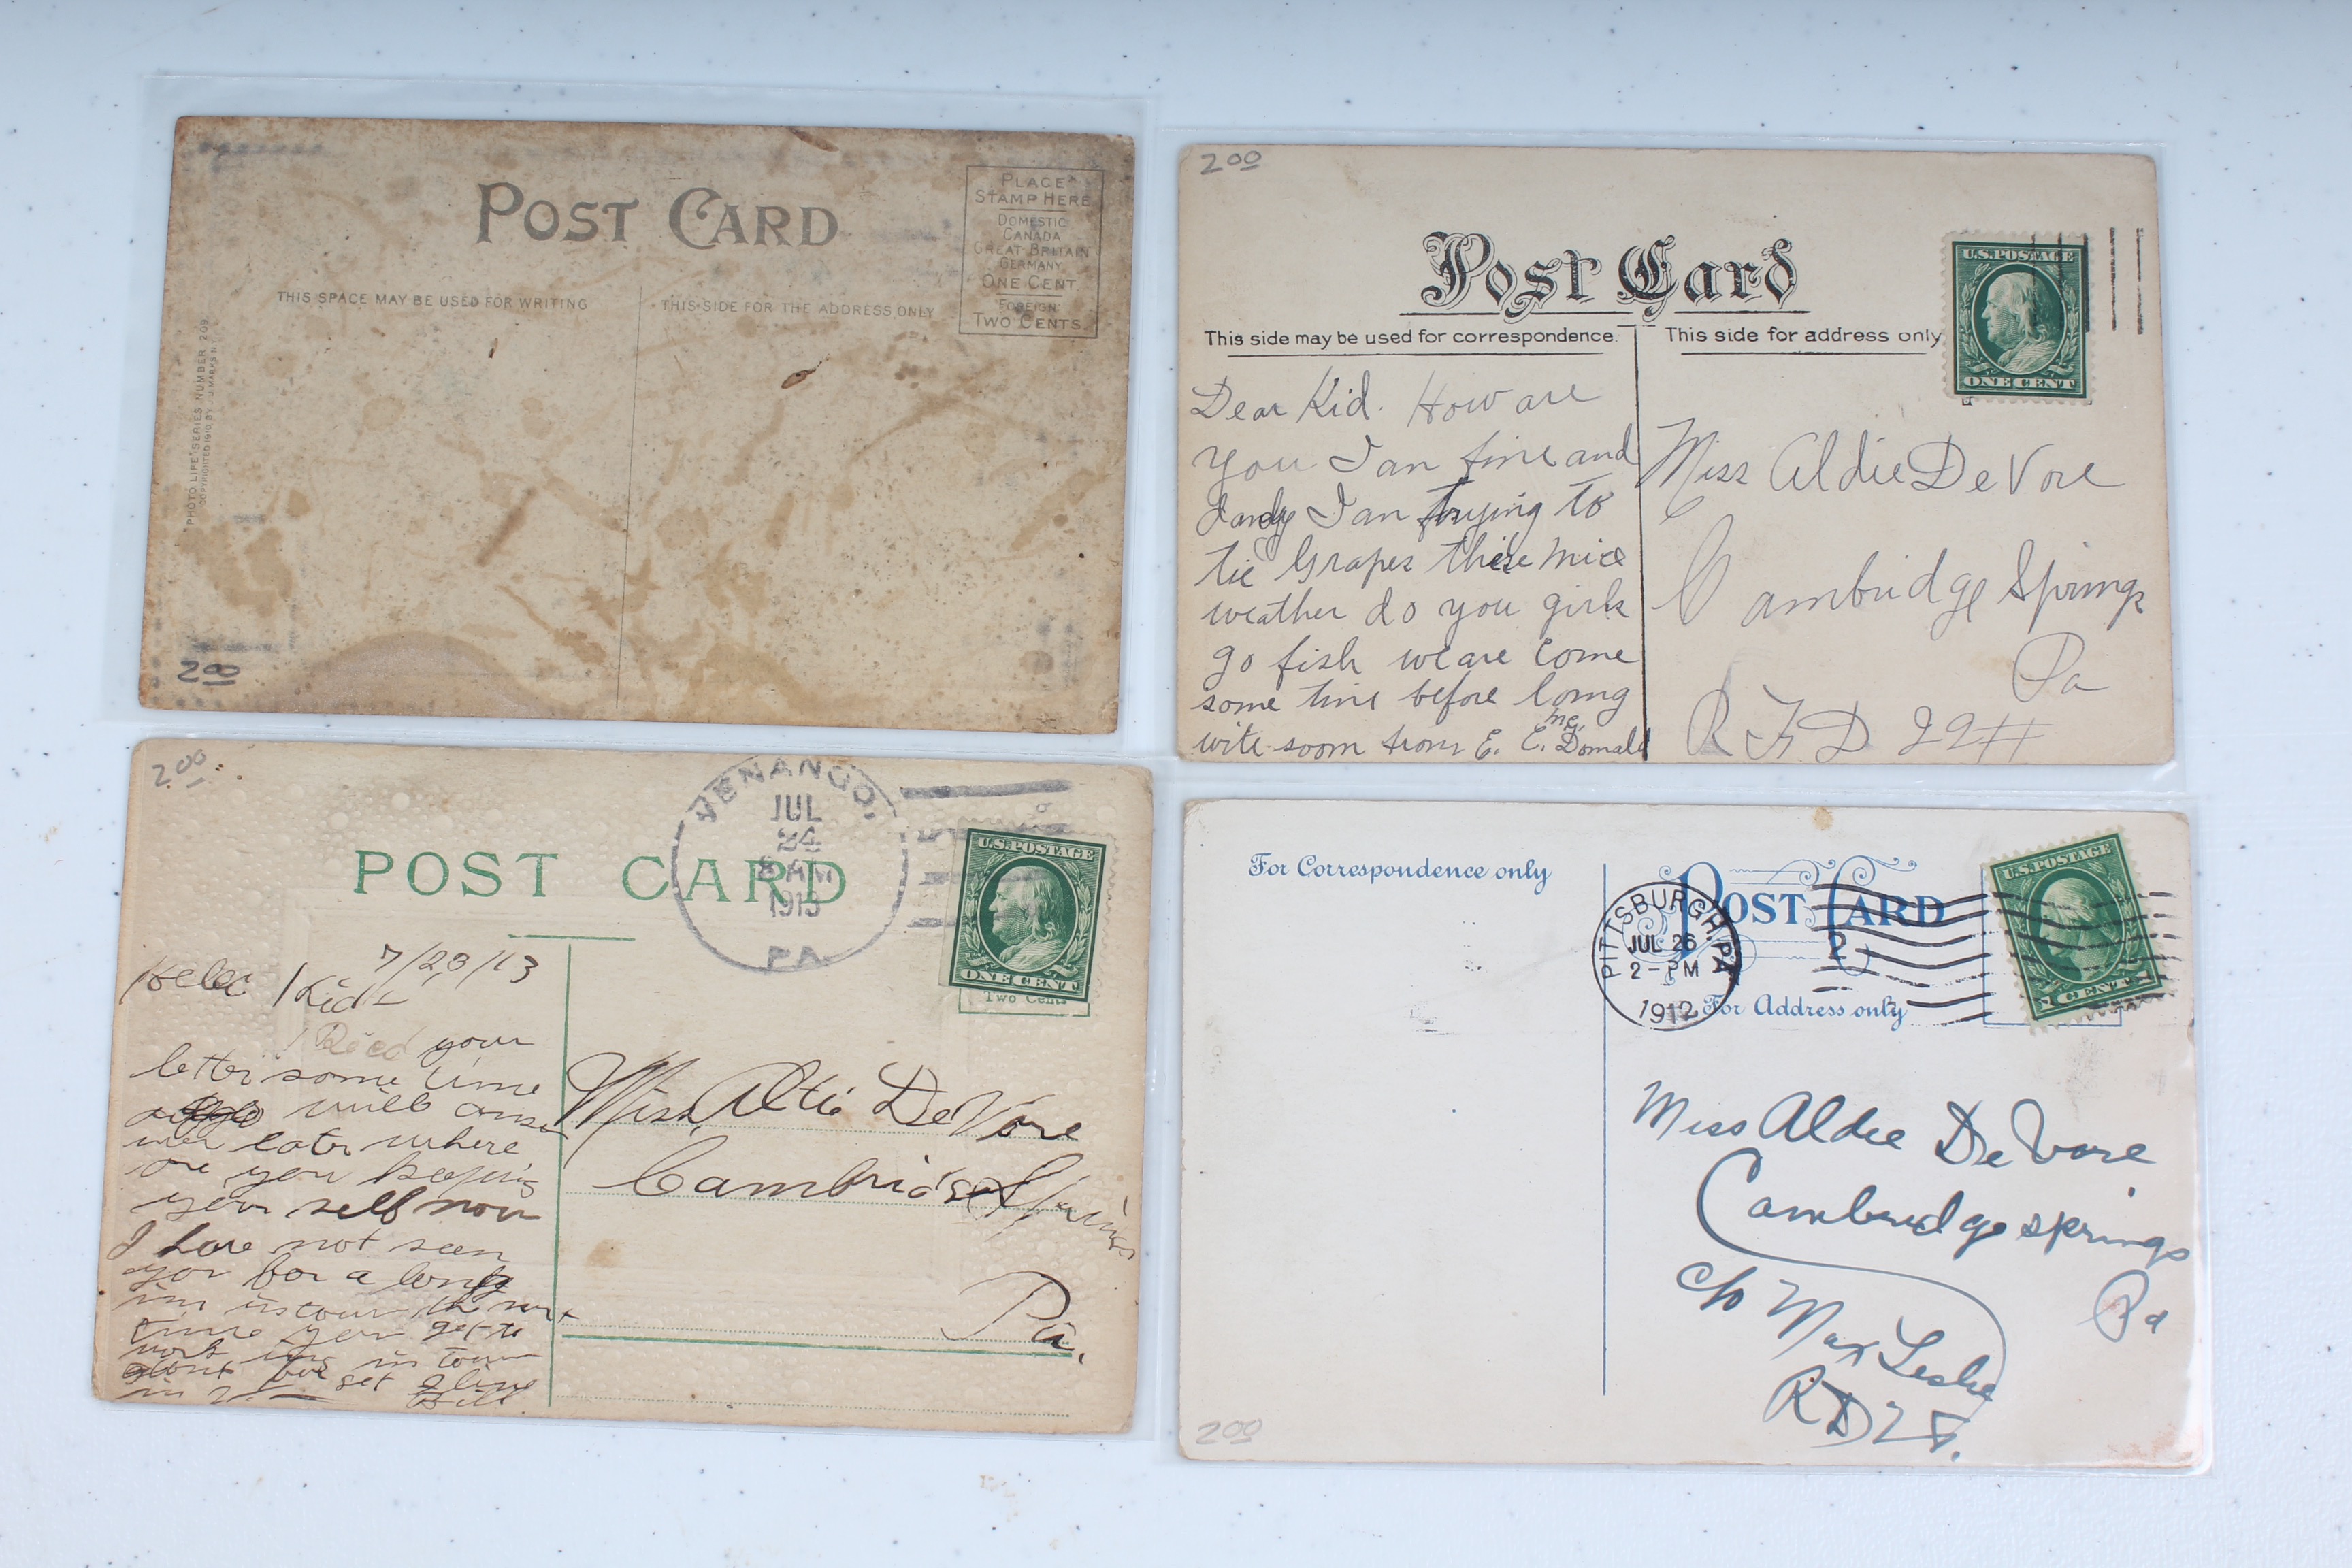 POST CARD
PLACE
STAMP HERE
DOMESTIC
CANADA
GREAT BRITAIN
GERMANY
ONE CENT
FOREIGN
TWO CENTS.
THIS SPACE MAY BE USED FOR WRITING
THIS SIDE FOR THE ADDRESS ONLY
"PHOTO LIFE" SERIES NUMBER 209
COPYRIGHTED 1910, BY J. MARKS N.Y.
2 00
2 00
Post Card
U.S. POSTAGE
ONE CENT
This side may be used for correspondence.
This side for address only
Dear Kid. How are
you I an fine and
dandy I an trying to
tie Grapes these nice
weather do you girls
go fish we are come
some time before long
wite soon from E. E. Mc Donald
Miss Aldie De Vore
Cambridge Springs
Pa
R F D 29#
2 00
POST CARD
VENANGO,
JUL
24
8 AM
1913
PA.
U.S. POSTAGE
ONE CENT
Two Cents
7/23/13
Hello Kid
Recd your
letter some time
ago will ans
wer later where
are you keeping
your self now
I have not seen
you for a long
time
time you get to
in town
get a line
Bill
Miss, Altie De Vore
Cambridge Springs
Pa.
For Correspondence only
POST CARD
For Address only
PITTSBURGH, PA.
JUL 26
2-PM
1912
2
U.S. POSTAGE
1 CENT 1
Miss Aldie De Vore
Cambridge springs
Pa
c/o Max Leslie
R D 28.
2 00